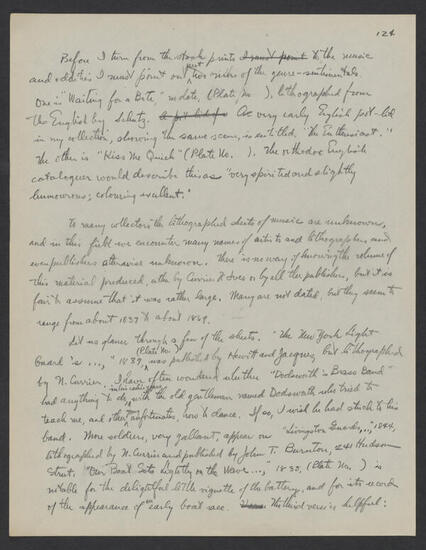 124
Before I turn from the stock prints I must point to the music
and oddities I must point out just two more of the genre-sentimentals.
One is "Waiting for a Bite," no date, (Plate No. ), lithographed from
the English by Schutz. A pot lid of a A very early English pot-lid
in my collection, showing the same scene, is entitled, "The Enthusiast."
The other is "Kiss Me Quick" (Plate No. ). The orthodox English
cataloguer would describe this as "very spirited and slightly
humourous; colouring excellent."
To many collectors the lithographed sheets of music are unknown,
and in this field we encounter many names of artists and lithographers, and
even publishers otherwise unknown. There is no way of knowing the volume of
this material produced, either by Currier & Ives or by all the publishers, but it is
fair to assume that it was rather large. Many are not dated, but they seem to
range from about 1837 to about 1869.
Let us glance through a few of the sheets. "The New York Light
Guard's ...," 1839, (Plate No. ) was published by Hewitt and Jacques, but lithographed
by N. Currier. I have often wondered whether "Dodworth's Brass Band"
had anything to do, with the old gentleman named Dodworth who tried to
teach me, and other unfortunates, how to dance. If so, I wish he had stuck to his
band. More soldiers, very gallant, appear on "Livingston Guards,..," 1844,
lithographed by N. Currier and published by John T. Burnton, 241 Hudson
Street. "Our Boat Sets Lightly on the Wave ...," 1835, (Plate No. ) is
notable for the delightful little vignette of the battery, and for its record
of the appearance of an early boat race. The third verse is helpful: